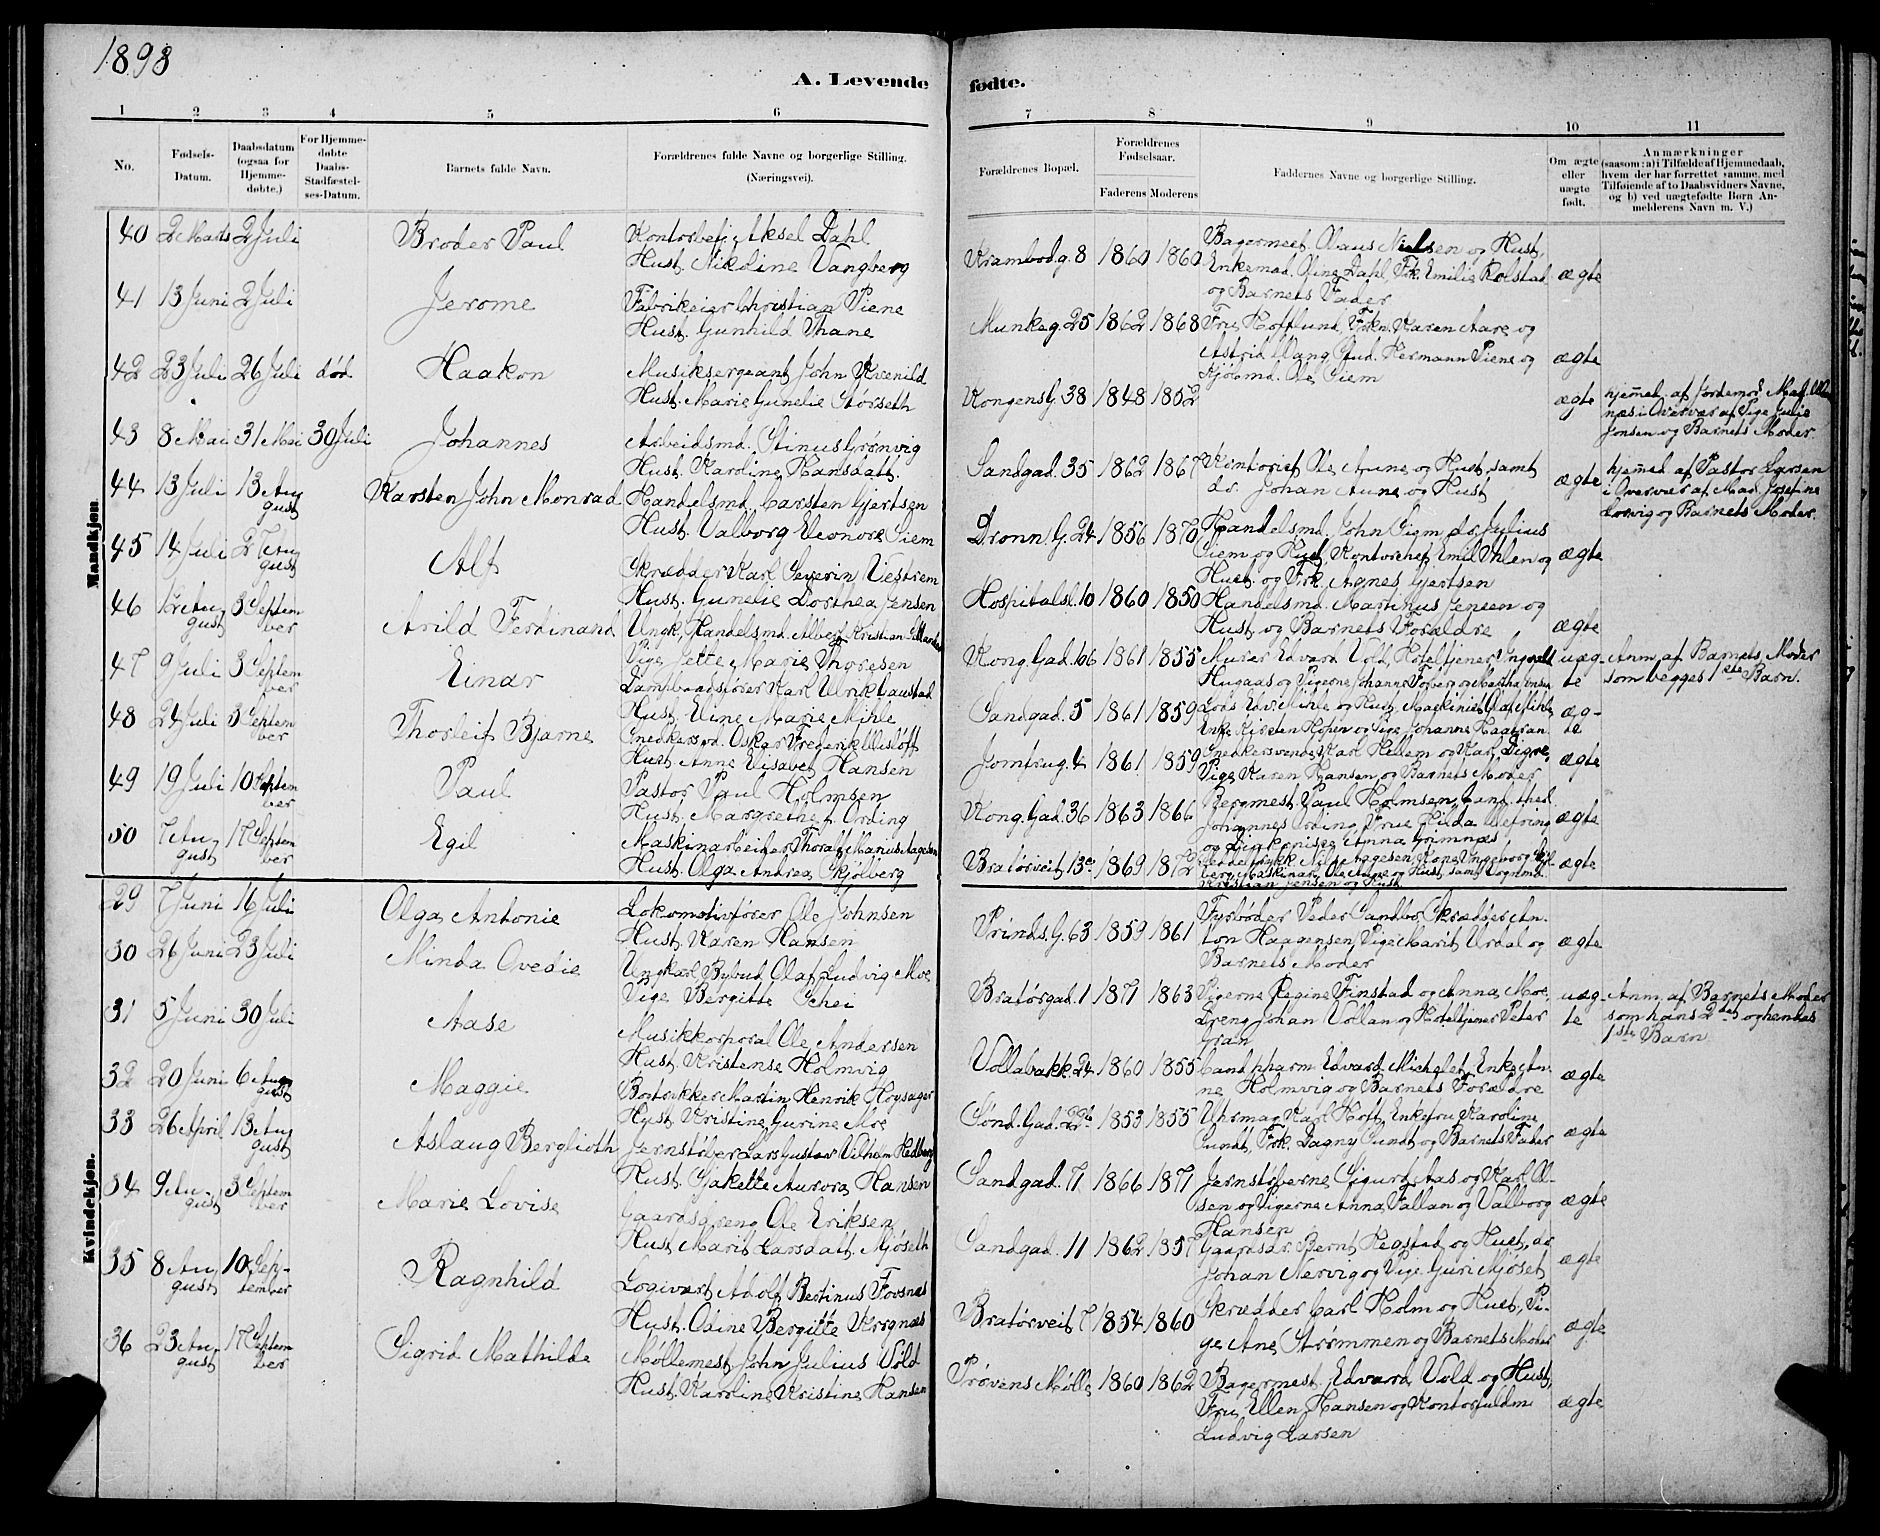 1893
A. Levende
1 2 3 4 5 6
No.
Fødsels-Datum.
Daabsdatum (ogsaa for Hjemmedøbte.)
For Hjemmedøbte Daabs-Stadfæstelses-Datum.
Barnets fulde Navn.
Forældrenes fulde Navne og borgerlige Stilling. (Næringsvei).
Mandkjøn
40 2 Marts 2 Juli Broder Paul Kontorbetj. Aksel Dahl
Hust. Nikoline Vangberg
41 13 Juni 2 Juli Jerome Fabrikeier Christian Piene
Hust. Gunhild Thane
42 23 Juli 26 Juli død Haakon Musiksergeant John Kvenild
Hust. Marie Gunelie Størseth
43 8 Mai 31 Mai 30 Juli Johannes Arbeidsmd. Stinus Grønvig
Hust. Karoline Hansdatt.
44 13 Juli 13 August Karsten John Monrad Handelsmd. Carsten Gjertsen
Hust. Valborg Eleonore Siem
45 14 Juli 27 August Alf Skrædder Karl Severin Vestrem
Hust. Gunelie Dorthea Jensen
46 1ste August 3 September Arild Ferdinand Ungk. Handelsmd. Albert Kristian
Pige Jette Marie Thoresen
47 9 Juli 3 September Einar Dampbaadsfører Karl Ulrik Caustad
Hust. Eline Marie Mihle
48 24 Juli 3 September Thorleif Bjarne Snedkersvd. Oskar Frederik Wisløff
Hust. Anne Elisabet Hansen
49 19 Juli 10 September Paul Pastor Paul Holmsen
Hust. Margrethe f. Ording
50 7 August 17 September Egil Maskinarbeider Thoralf Manus Aagesen
Hust. Olga Andrea Skjølberg
Kvindekjøn.
29 7 Juni 16 Juli Olga Antonie Lokomotivfører Ole Johnsen
Hust. Karen Hansen
30 26 Juni 23 Juli Minda Ovedie Ungkarl Bybud Olaf Ludvig Moe
Pige Bergitte Schei
31 5 Juni 30 Juli Aase Musikkorporal Ole Andersen
Hust. Kristense Holmvig
32 20 Juni 6 August Maggie Bogtrykker Martin Henrik Høysager
Hust. Kristine Gurine Moe
33 26 April 13 August Aslaug Berglioth Jernstøber Lars Gustav Vilhelm Hedberg
Hust. Jakette Aurora Hansen
34 9 August 3 September Marie Lovise Gaardsdreng Ole Eriksen
Hust. Marit Larsdatt. Mjøseth
35 8 August 10 September Ragnhild Logivært Adolf Bertinus Fosnæs
Hust. Odine Bergitte Vorgnæs
36 23 August 17 September Sigrid Mathilde Møllemest. John Julius Vold
Hust. Karoline Kristine Hansen
fødte.
7 8 9 10 11
Forældrenes Bopæl.
Forældrenes Fødselsaar.
Faderens Moderens
Faddernes Navne og borgerlige Stilling.
Om ægte eller uægte født.
Anmærkninger (saasom: a) i Tilfælde af Hjemmedaab, hvem der har forrettet samme, med Tilføiende af to Daabsvidners Navne, og b) ved uægtefødte Børn Anmelderens Navn m. V.)
Krambodg. 8 1860 1860 Bagermest. Olaus Nielsen og Hust,
Enkemad. Oline Dahl, Frk. Emilie Rolstad ægte
og Barnets Fader
Munkeg. 25 1862 1868 Fru Hofflund, Frkn. Karen Aare og
Astrid Wang, Stud. Hermann Piene og ægte
Kjøbmd. Ole Siem
Kongensg. 38 1848 1852 ægte hjemmed. af Jordemor
i Overvær af Pige Julie
Jonsen og Barnets Moder.
Sandgad. 35 1862 1867 Kontorist Ole Aune og Hust, samt
do. Johan Aune og Hust ægte hjemmed. af Pastor Larsen
i Overvær af Mad. Josefine
Lorvig og Barnets Moder.
Dronn. G. 24 1856 1870 Handelsmd. John Siem, do. Julius
Siem og Hust, Kontorchef Emil Ihlen og ægte
Hust. og Frk. Agnes Gjertsen
Hospitalsl. 10 1860 1850 Handelsmd. Martinus Jensen og
Hust. og Barnets Forældre ægte
Kong. Gad. 66 1861 1855 Murer Edvard Vold, Hoteltjener Ingvald uæg- Anm. af Barnets Moder
Hugaas og Pigerne Johanna Foberg og Martha te som begges 1ste Barn.
Sandgad. 5 1861 1859 Lods Edv. Mihle og Hust, Maskinist Olaf Mihle, æg-
Enke Kirsten Hopen og Pige Johanne Haagran te
Jomfrug. 4 1861 1859 Snedkersvende Karl Hellem og Karl Digre,
Pige Karen Hansen og Barnets Moder ægte
Kong. Gad. 36 1863 1866 Bergmest. Paul Holmsen, Cand. theol.
Johannes Ording, Frue Hilda Wefring ægte
og Diakonisse Anna Grimnæs
Bratørveit 13c 1869 1872 Nils Aagesen, Kone Ingeborg ægte
Maskinar. Ole Aune og Hust, samt
Kristian Jensen og Hust
Prinds. G. 63 1859 1861 Fyrbøder Peder Sandbo, Skrædder An-
ton Haagensen, Pige Marit Urdal og ægte
Barnets Moder
Bratørgad. 1 1871 1863 Pigerne Regine Finstad og Anna Moe, uæg- Anm. af Barnets Moder
Dreng Johan Vollan og Hoteltjener Peter te som hans 2det og hendes
Gran 1ste Barn
Vollabakk. 24 1860 1855 Cand. pharm. Edvard Michelet, Enke An-
ne Holmvig og Barnets Forældre ægte
Sønd. Gad. 22b 1853 1855 Uhrmag. Karl Hoft, Enkefru Karoline
Sundt, Frk. Dagny Sundt og Barnets Fader ægte
Sandgad. 71 1866 1871 Jernstøberne Sigurd Aas og Karl Ol-
sen og Pigerne Anna Fallan og Valborg ægte
Hansen
Sandgad. 11 1862 1857 Gaardsdr. Bernt Hegstad og Hust, do.
Johan Nervig og Pige Guri Mjøset ægte
Bratørveit 7 1854 1860 Skrædder Carl Holm og Hust, Pi-
ge Ane Strømmen og Barnets Moder ægte
Prøvens Mølle 1860 1862 Bagermest. Edvard Vold og Hust,
Fru Ellen Hansen og Kontorfuldm. ægte
Ludvig Larsen